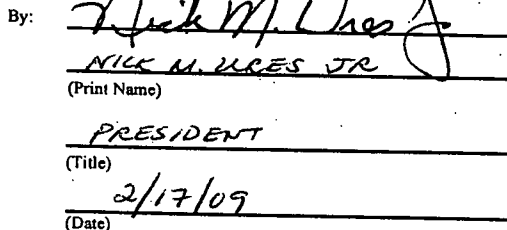 By: Nick M. Ures Jr
NICK M. URES JR
(Print Name)
PRESIDENT
(Title)
2/17/09
(Date)